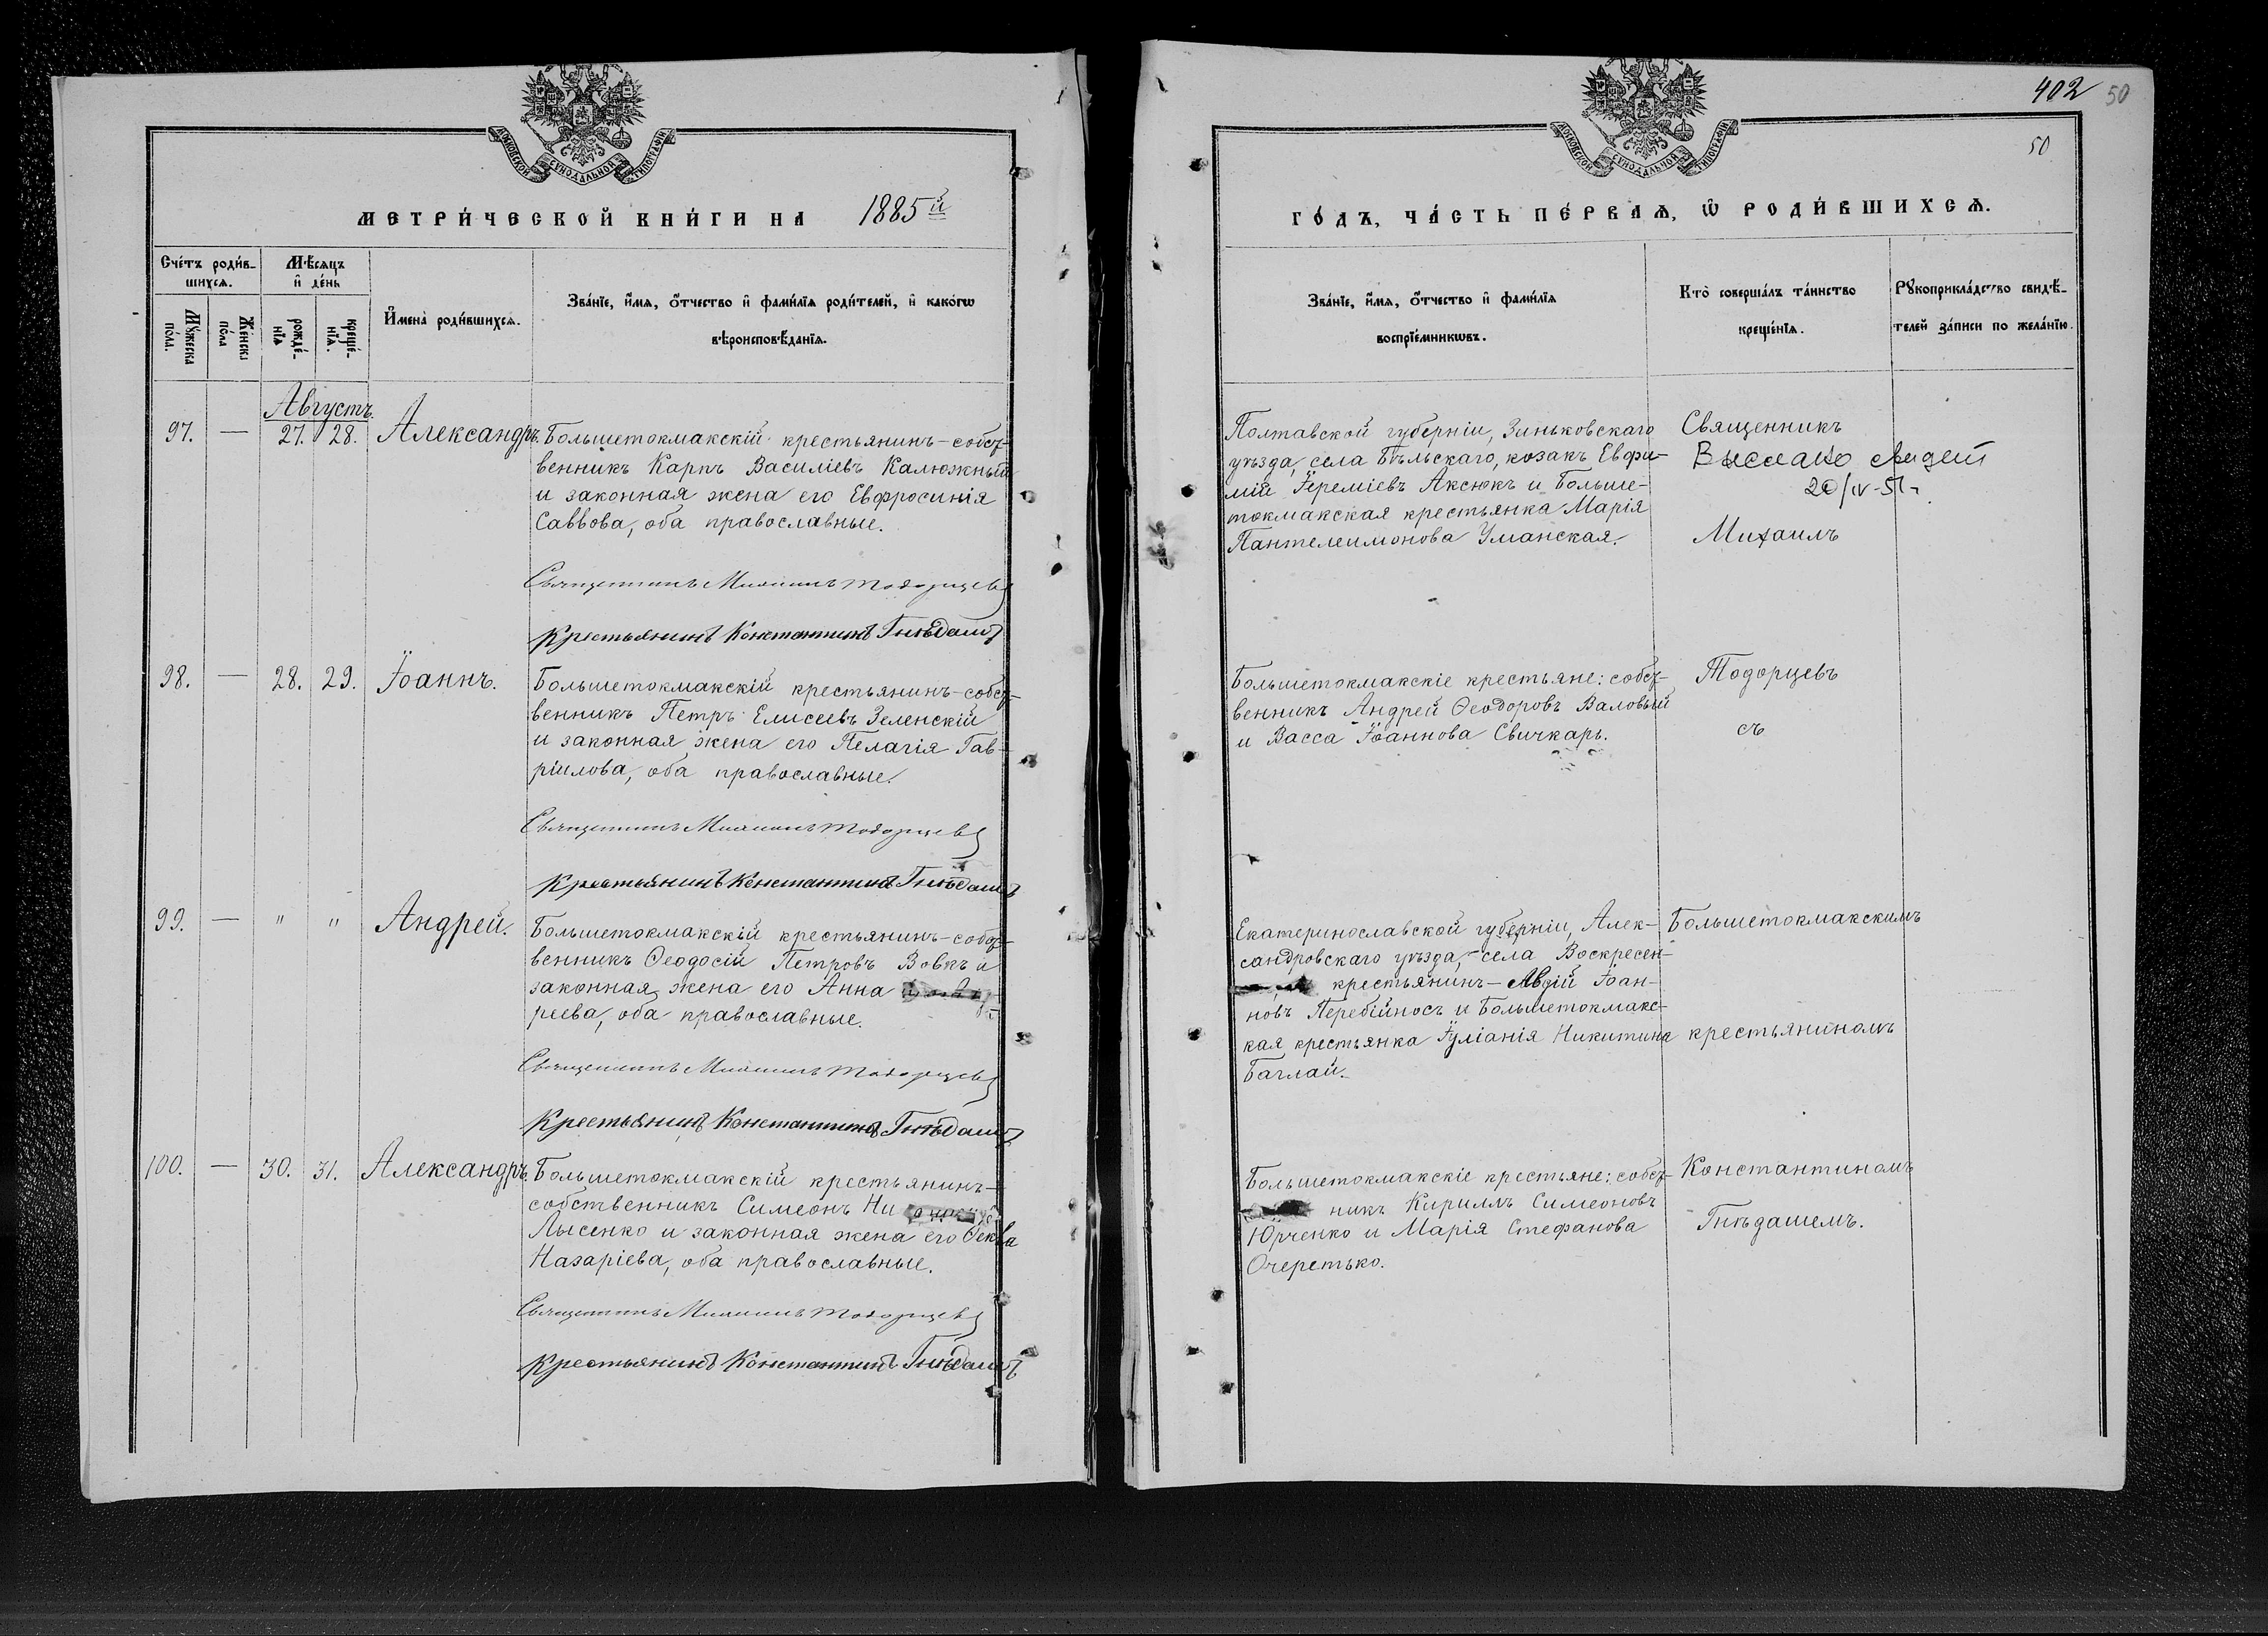 МОСКОВСКОЙ СУНОДАЛЬНОЙ ТИПОГРАФІИ
МЕТРИ́ЧЕСКОЙ КНИ́ГИ НА 1885й
Счéтъ роди́в-
шихсѧ.
Мꙋ́жеска
по́ла.
Же́нска
по́ла
Мѣ́сѧцъ
и҆ де́нь
рожде́-
нїѧ
креще́-
нїѧ.
И҆мена̀ роди́вшихсѧ.
Зва́нїе, и҆́мѧ, ѻ҆́тчество и҆ фами́лїѧ роди́телей, и҆ како́гѡ
вѣроисповѣ́данїѧ.
Августъ.
97. — 27. 28. Александръ. Большетокмакскій крестьянинъ-собст-
венникъ Карпъ Василіевъ Калюжный
и законная жена его Евфросинія
Саввова, оба православные.
Священникъ Михаилъ Тодорцевъ
Крестьянинъ Константинъ Гнѣдашъ
98. — 28. 29. Іоаннъ. Большетокмакскій крестьянинъ-собст-
венникъ Петръ Елисеевъ Зеленскій
и законная жена его Пелагія Гав-
ріилова, оба православные.
Священникъ Михаилъ Тодорцевъ
Крестьянинъ Константинъ Гнѣдашъ
99. — " " Андрей. Большетокмакскій крестьянинъ-собст-
венникъ Ѳеодосій Петровъ Вовкъ и
законная жена его Анна
реева, оба православные.
Священникъ Михаилъ Тодорцевъ
Крестьянинъ Константинъ Гнѣдашъ
100. — 30. 31. Александръ. Большетокмакскій крестьянинъ-
собственникъ Симеонъ Ни
Лысенко и законная жена его Ѳекла
Назаріева, оба православные.
Священникъ Михаилъ Тодорцевъ
Крестьянинъ Константинъ Гнѣдашъ
402 50
50
МОСКОВСКОЙ СУНОДАЛЬНОЙ ТИПОГРАФІИ
ГО́ДЪ, ЧА́СТЬ ПЕ́РВАѦ, Ѡ҆ РОДИ́ВШИХСѦ.
Зва́нїе, и҆́мѧ, ѻ҆́тчество и҆ фами́лїѧ
воспрїе́мникѡвъ.
Кто̀ соверша́лъ та́инство
креще́нїѧ.
Рꙋкоприкла́дство свидѣ́-
телей за́писи по жела́нїю.
Полтавской губерніи, Зиньковскаго
уѣзда, села Бѣльскаго, козакъ Евфи-
мій Іереміевъ Аксюкъ и Больше-
токмакская крестьянка Марія
Пантелеимонова Уманская.
Священникъ
20/IV-51г.
Михаилъ
Большетокмакскіе крестьяне: собст-
венникъ Андрей Ѳеодоровъ Валовый
и Васса Іоаннова Свичкарь.
Тодорцевъ
съ
Екатеринославской губерніи, Алек-
сандровскаго уѣзда, села Воскресен-
крестьянинъ-Авдій Іоан-
новъ Перебійносъ и Большетокмакс-
кая крестьянка Іуліанія Никитина
Баглай.
Большетокмакскимъ
крестьяниномъ
Большетокмакскіе крестьяне: собст-
никъ Кириллъ Симеоновъ
Юрченко и Марія Стефанова
Очеретько.
Константиномъ
Гнѣдашемъ.